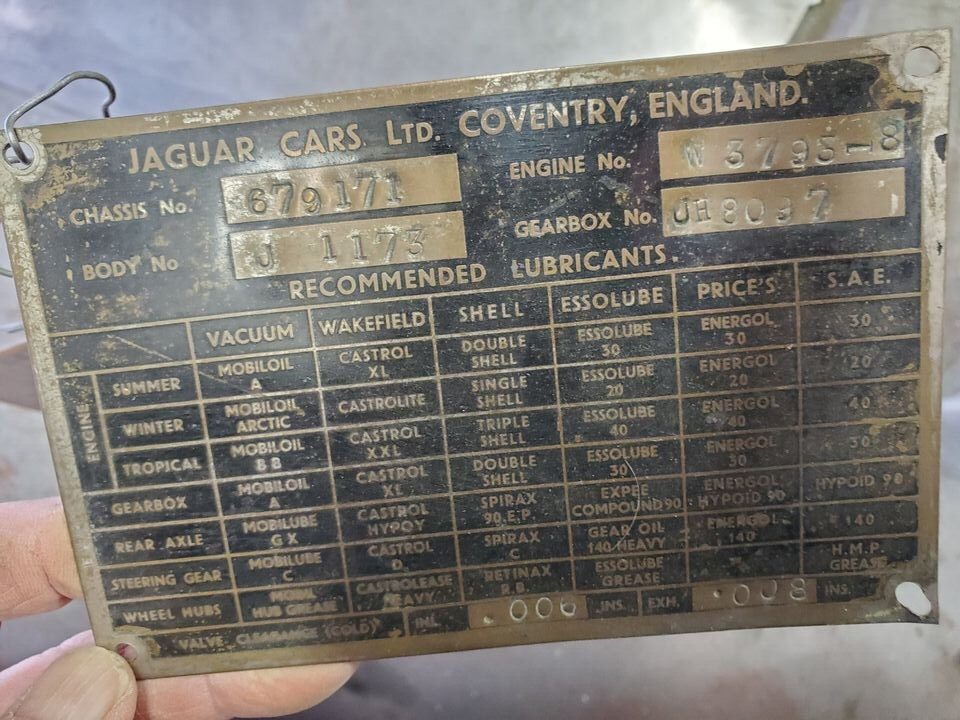 JAGUAR CARS LTD. COVENTRY, ENGLAND.
CHASSIS No. 679171 ENGINE No. W 3793-8
BODY No J 1173 GEARBOX No. JH 8037
RECOMMENDED LUBRICANTS.
VACUUM WAKEFIELD SHELL ESSOLUBE PRICE'S S.A.E.
ENGINE
SUMMER MOBILOIL A CASTROL XL DOUBLE SHELL ESSOLUBE 30 ENERGOL 30 30
WINTER MOBILOIL ARCTIC CASTROLITE SINGLE SHELL ESSOLUBE 20 ENERGOL 20 20
TROPICAL MOBILOIL BB CASTROL XXL TRIPLE SHELL ESSOLUBE 40 ENERGOL 40 40
GEARBOX MOBILOIL A CASTROL XL DOUBLE SHELL ESSOLUBE 30 ENERGOL 30 30
REAR AXLE MOBILUBE GX CASTROL HYPOY SPIRAX 90.E.P. EXPEE COMPOUND 90 ENERGOL HYPOID 90 HYPOID 90
STEERING GEAR MOBILUBE C CASTROL D. SPIRAX C GEAR OIL 140 HEAVY ENERGOL 140 140
WHEEL HUBS MOBIL HUB GREASE CASTROLEASE HEAVY RETINAX ESSOLUBE GREASE H.M.P. GREASE
VALVE CLEARANCE (COLD) INL. .006 INS. EXH. .008 INS.